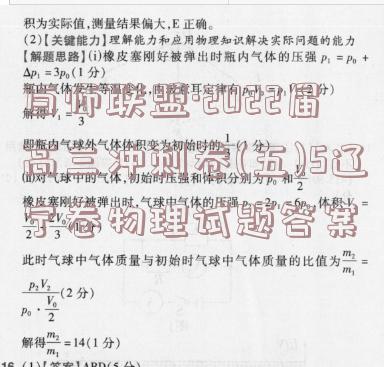 积为实际值,测量结果偏大,E 正确。
(2)【关键能力】理解能力和应用物理知识解决实际问题的能力
【解题思路】(i)橡皮塞刚好被弹出时瓶内气体的压强 p₁ = p₀ +
Δp₁ = 3p₀(1 分)
瓶内气体发生等温变化,由玻意耳定律有 p₀V₀ = p₁V₁(2 分)
百师联盟·2022届
解得 V₁ = V₀/3
即瓶内气球外气体体积变为初始时的 1/3 (1 分)
高三冲刺卷(五)5辽
(ii)对气球中的气体,初始时压强和体积分别为 p₀ 和 V₀/2
橡皮塞刚好被弹出时,气球中气体的压强 p₂ = 2p₁ = 6p₀,体积 V₂ =
宁卷物理试题答案
V₀ 2V₀/3 (1 分)
此时气球中气体质量与初始时气球中气体质量的比值为 m₂/m₁ =
p₂V₂/(p₀·V₀/2) (2 分)
解得 m₂/m₁ = 14(1 分)
16 (1)【答案】ABD(5 分)